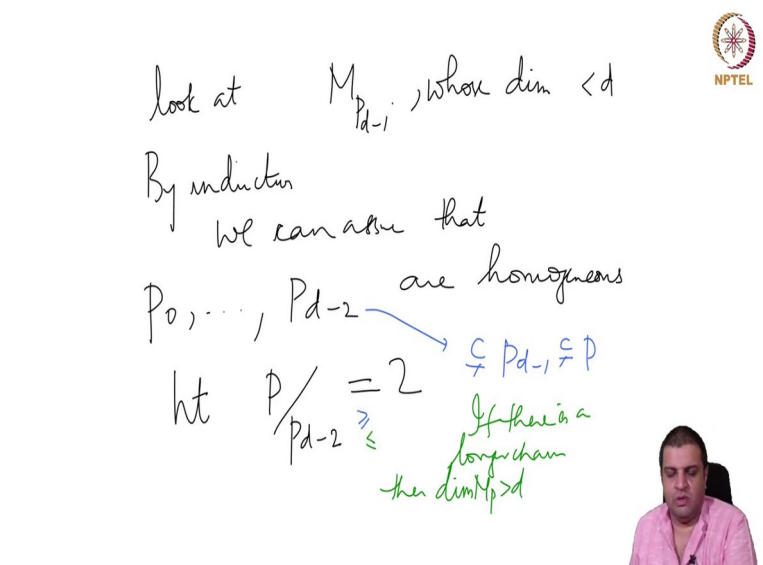 look at M_{P_{d-1}}, whose dim < d
NPTEL
By induction
we can assume that
P_0, ..., P_{d-2} are homogeneous
⊊ P_{d-1} ⊊ P
ht P/P_{d-2} = 2
≥
≤
If there is a
longer chain
then dim M_P > d